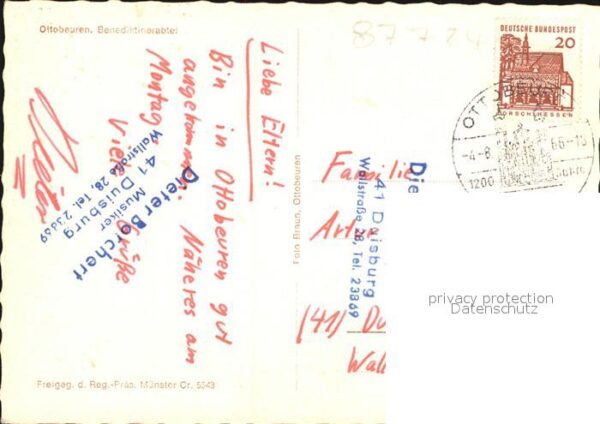 Ottobeuren, Benediktinerabtei
Liebe Eltern!
Bin in Ottobeuren gut
angekommen. Näheres am
Montag.
Viele Grüße
Dieter
Dieter Borchert
Musiker
41 Duisburg
Wallstraße 28, Tel. 23869
Freigeg. d. Reg.-Präs. Münster Cr. 5343
Foto Braun, Ottobeuren
87724
DEUTSCHE BUNDESPOST
20
LORSCH/HESSEN
OTTOBEUREN
-4-8
66-18
1200
Familie
Artur
(41) Du
Wal
Die
41 Duisburg
Wallstraße 28, Tel. 23869
privacy protection
Datenschutz